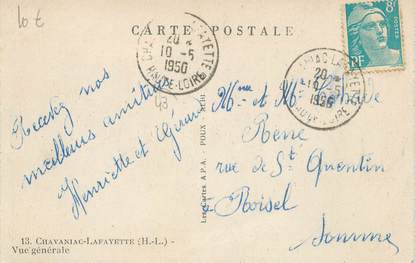 10 €
CARTE POSTALE
CHAVANIAC-LAFAYETTE
20 *
10 -5
1950
HAUTE-LOIRE
CHAVANIAC-LAFAYETTE
20 *
10 -5
1950
HAUTE-LOIRE
8F
RF
Recevez nos
meilleurs amitiés
Henriette et Gérard
Mme et Mr
René
rue de St Quentin
à Roisel
Somme
Les Cartes A.P.A. - POUX - ALBI
13. CHAVANIAC-LAFAYETTE (H.-L.) -
Vue générale